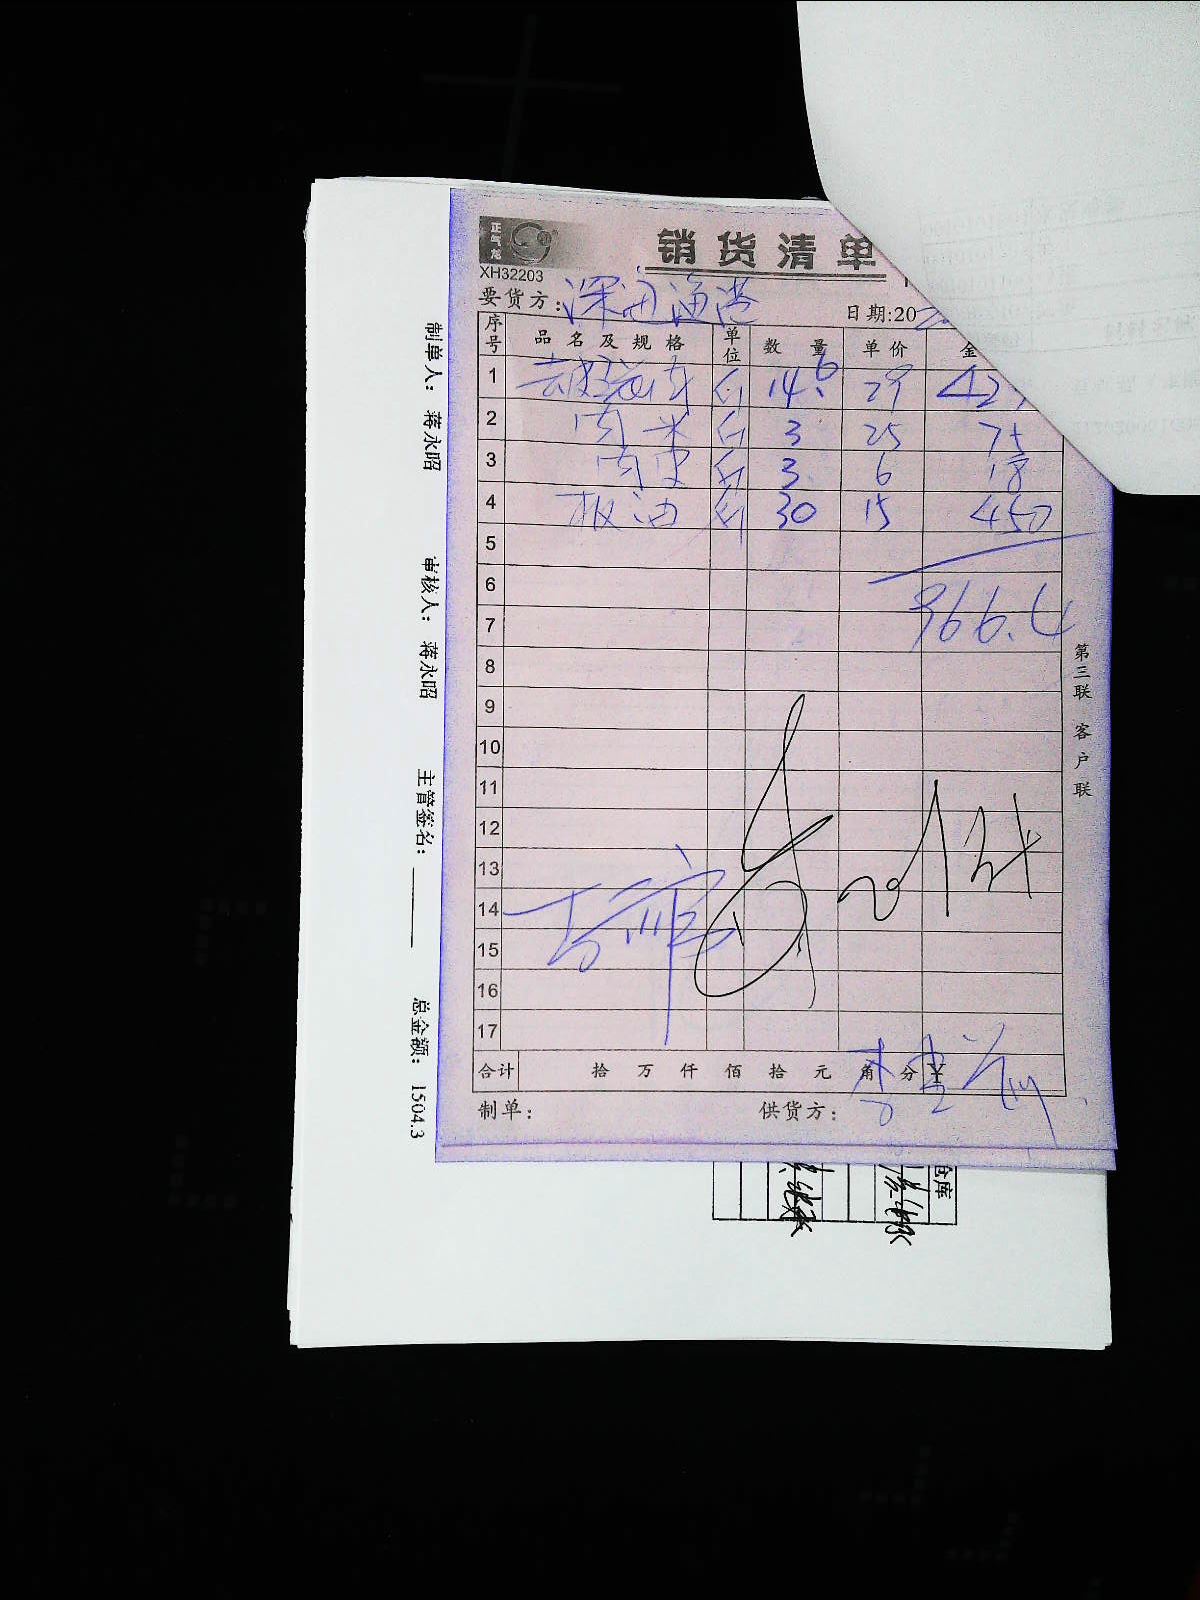 正气龙
销货清单
XH32203
要货方：深通渔港
日期:20
序号 品名及规格 单位 数量 单价 金
1 去皮 斤 14.6 29 42
2 肉米 斤 3 25 75
3 肉皮 斤 3 6 18
4 板油 斤 30 15 450
5
6
966.4
7
8
9
10
11
12
13
14
15
16
17
合计 拾 万 仟 佰 拾 元 角 分 ¥
制单： 供货方：
第三联 客户联
制单人： 蒋永昭 审核人： 蒋永昭 主管签名： 总金额： 1504.3
仓库